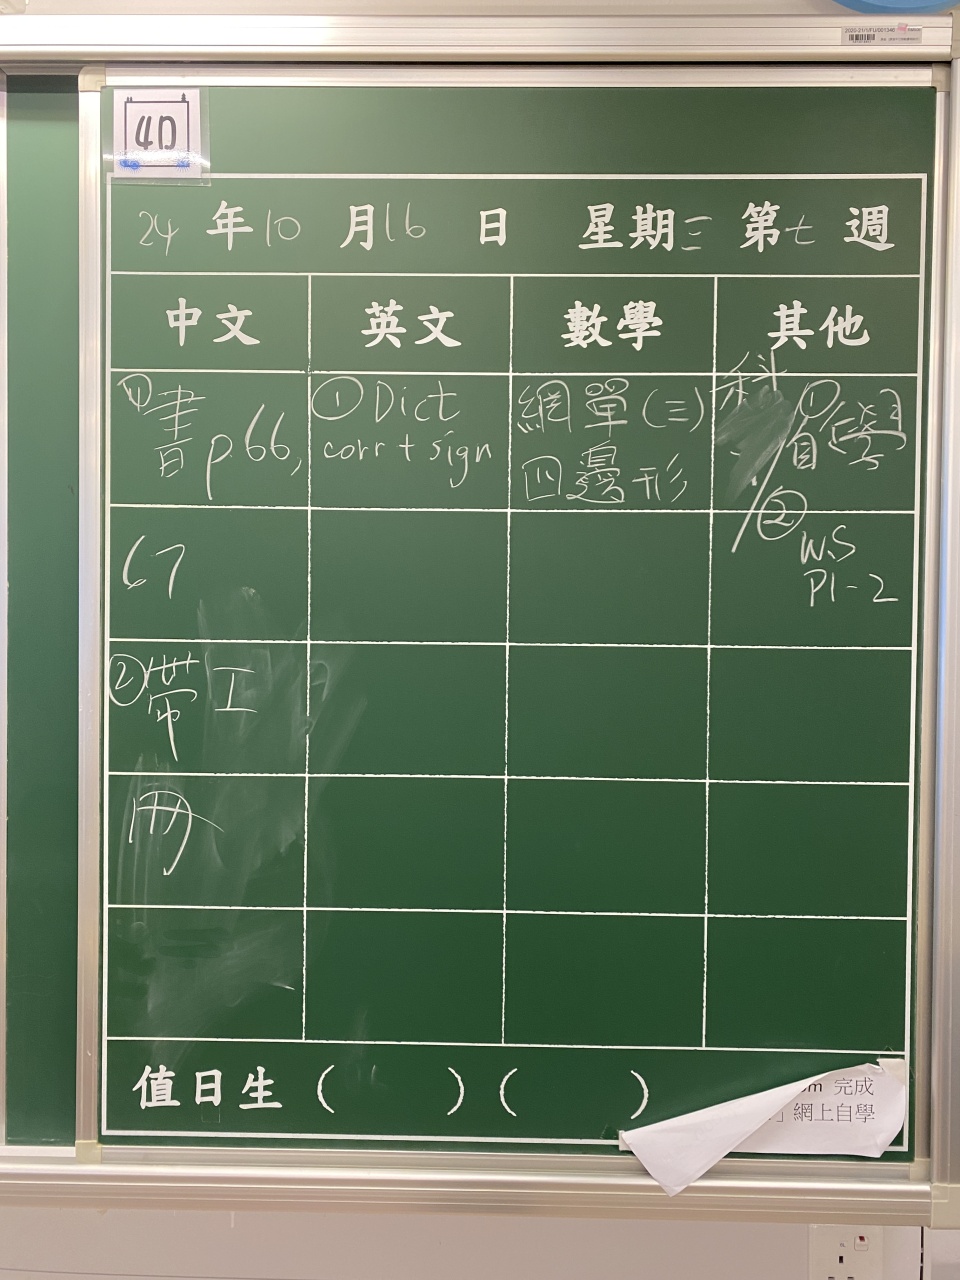 4D
24 年 10 月 16 日 星期三 第七週
中文 英文 數學 其他
① 書 p.66,
67
② 帶工
冊
① Dict
corr + sign
網單(三)
四邊形
科
① 自學
② W.S
P1-2
值日生 ( ) ( )
om 完成
」網上自學